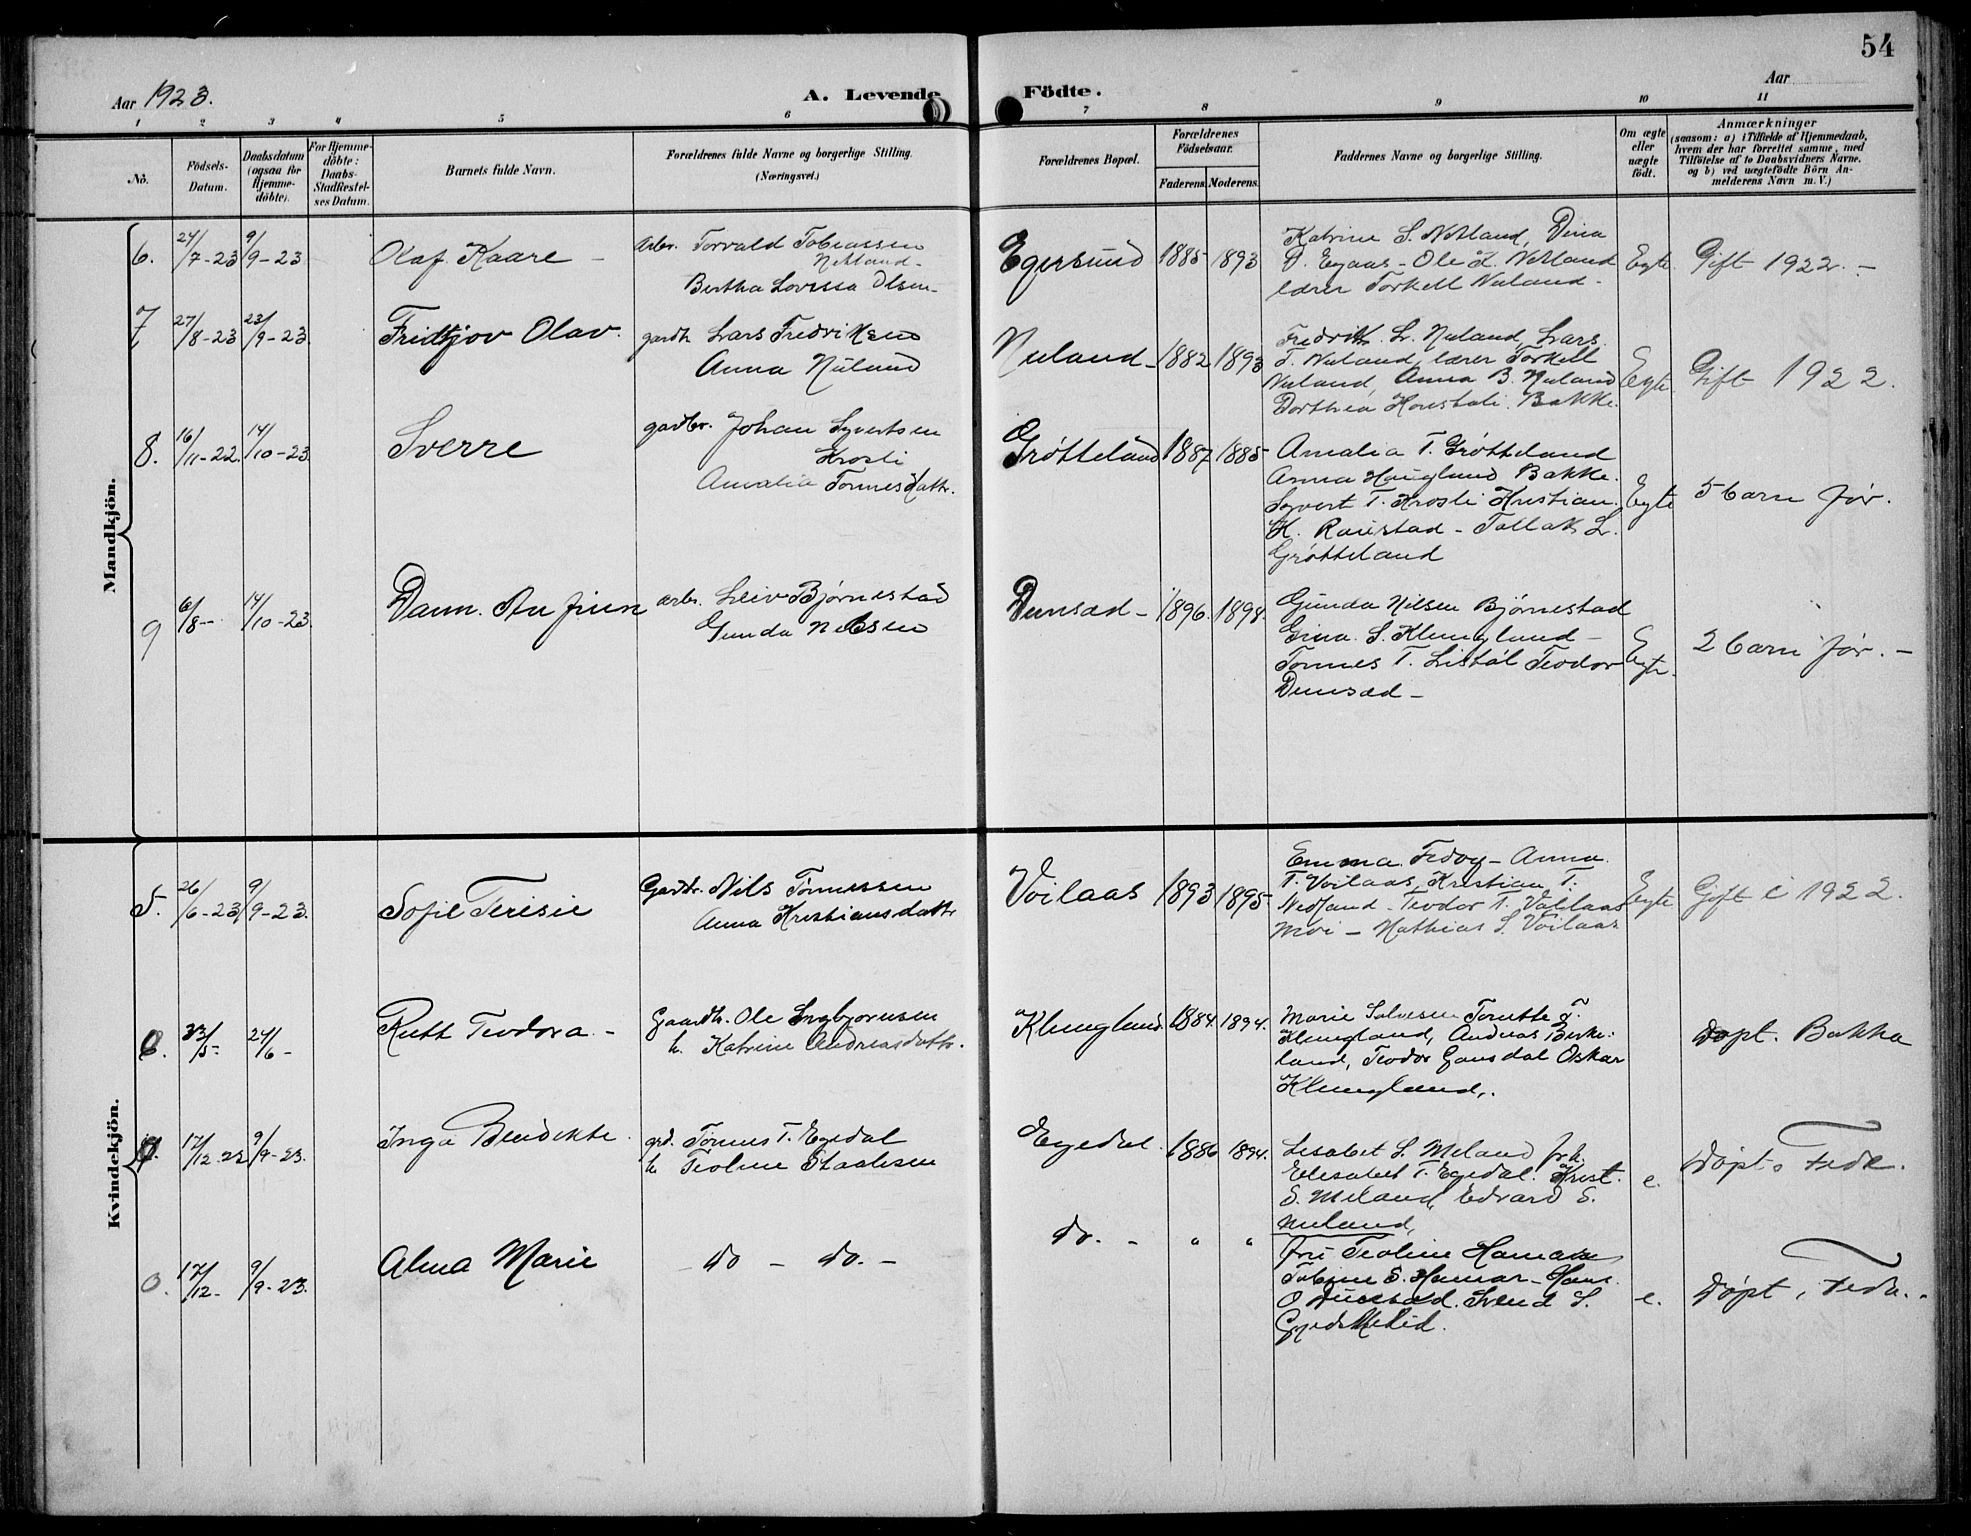 54
Aar 1923.
A. Levende Födte.
Aar
1 2 3 4 5 6 7 8 9 10 11
No.
Födsels-Datum.
Daabsdatum (ogsaa for Hjemme-döbte).
For Hjemme-döbte: Daabs-Stadfæstel-ses Datum.
Barnets fulde Navn.
Forældrenes fulde Navne og borgerlige Stilling. (Næringsvei.)
Forældrenes Bopæl.
Forældrenes Födselsaar.
Faderens. Moderens.
Faddernes Navne og borgerlige Stilling.
Om ægte eller uægte födt.
Anmærkninger
(saasom: a) i Tilfælde af Hjemmedaab,
hvem der har forrettet samme, med
Tilföielse af to Daabsvidners Navne,
og b) ved uægtefödte Börn An-
melderens Navn m. V.)
Mandkjön.
6. 24/7-23 9/9-23 Olaf Kaare - arbr. Torvald Tobiassen
Netland -
Bertha Lovissa Olsen -
Egersund 1885 1893
Katrine S. Netland, Dina
Ole K. Netland
lærer Torkell Nuland -
Egte Gift 1922. -
7 27/8-23 23/9-23 Fridtjov Olav. gardbr. Lars Fredriksen
Anna Nuland
Nuland - 1882 1893
Fredrik L. Nuland, Lars
T. Nuland, lærer Torkell
Nuland, Anna B. Nuland
Dorthea Bakke.
Egte Gift 1922.
8. 16/11-22. 14/10-23 Sverre gardbr. Johan Syvertsen
Krosli
Amalia Tønnesdattr.
Grötteland 1887 1885
Amalia T. Grøtteland
Anna Haugland Bakke.
Syvert T. Krosli Kristian
K. Raustad - Tallak L.
Grøtteland
Egte 5 barn før.
9 6/8- 14/10-23. arbr. Leiv Bjørnestad
Gunda Nilsen
Dunsæd - 1896. 1898.
Gunda Nilsen Bjørnestad
Gina S. Klungland -
Tønnes T. Listøl Teodor
Dunsæd -
Egte. 2 barn før. -
Kvindekjön.
5. 26/6-23 9/9-23. Sofie Terisie Gardbr. Nils Tønnessen
Anna Kristiansdattr
Voilaas 1893 1895
Emma Anna
T. Voilaas, Kristian T.
Netland - Teodor T. Voilaas
Moi - Mathias S. Voilaas
Egte Gift i 1922.
24/6- Ruth Teodora. - Gaardbr. Ole Ingbjørnsen
h. Katrine Andreasdattr.
Klungland 1884. 1894.
Marie Salvesen Tomette T.
Klungland, Andreas Birke-
land, Teodor Gausdal Oskar
Klungland,.
Døpt. Bakka
17/12-22 9/9-23. Inga Bendikte. grd. Tønnes T. Egedal
h. Teoline Staalesen
Egedal. 1886 1894.
Lisabet S. Meland frk.
Elisabet T. Egedal. Krist.
S. Meland, Edvard S.
Nuland,
e. Døpt. Fede.
17/12- 9/9-23. Alma Marie do - do. -
do. - " "
fru Teoline Hamar
Tobine S. Hamar - Hans
O. Svend S.
e. Døpt, Fede.